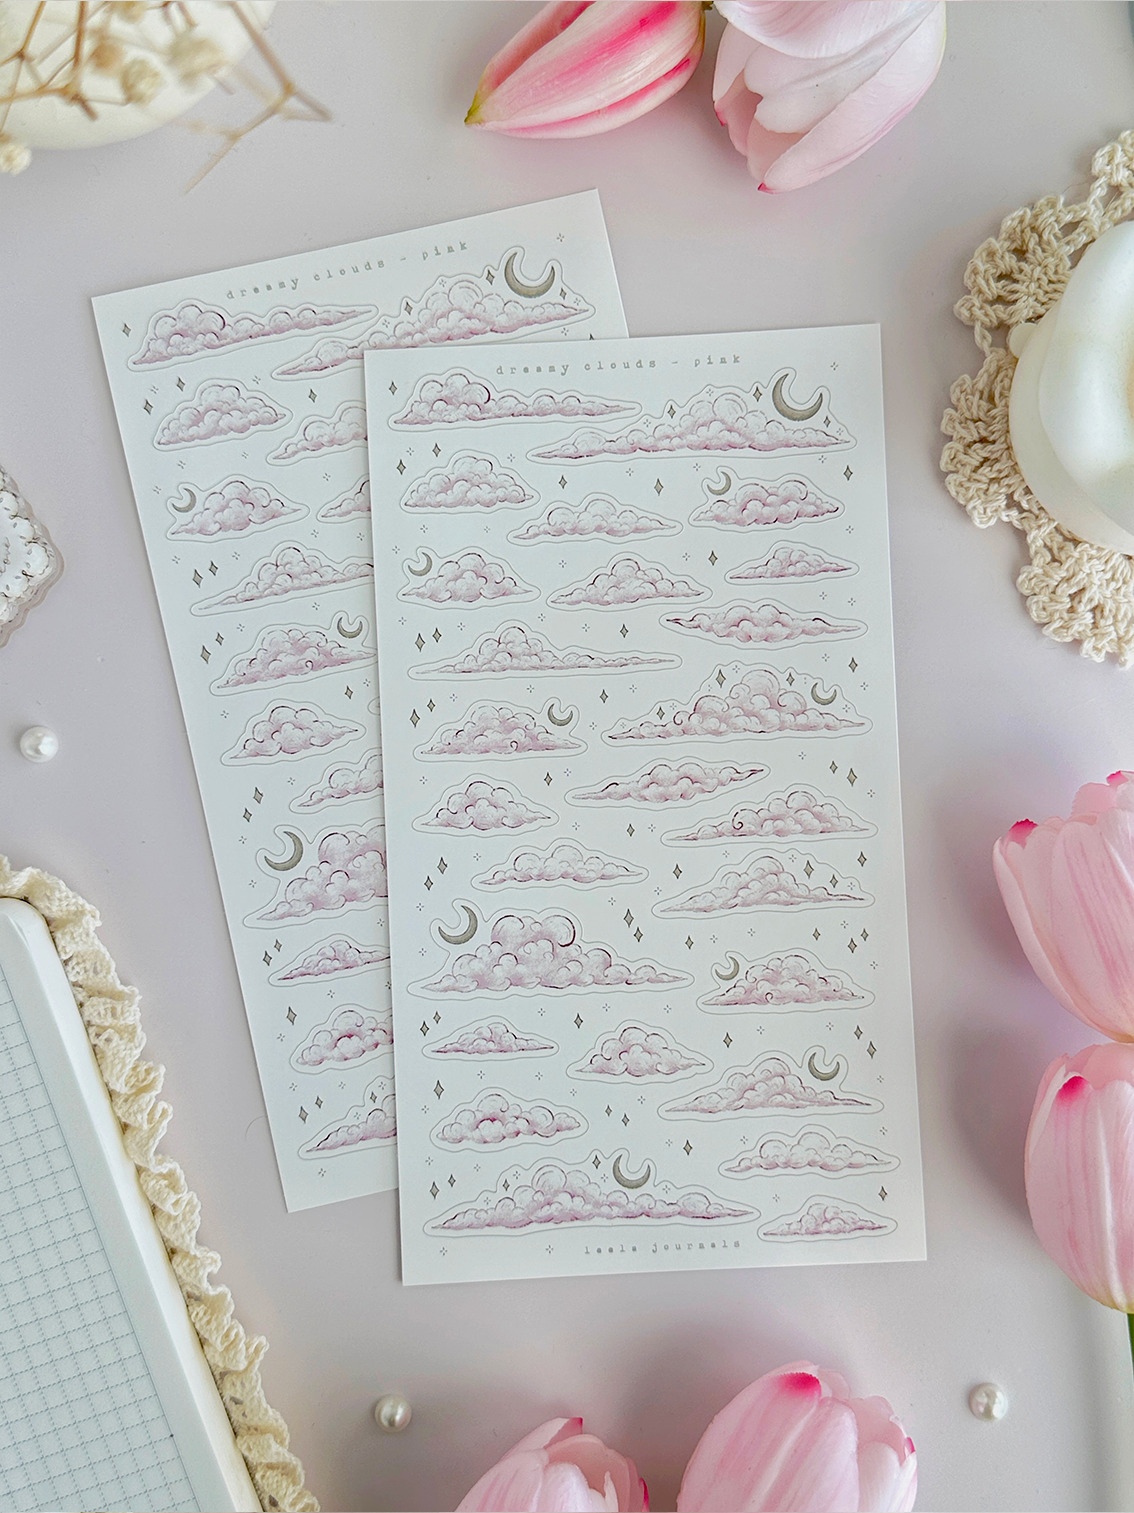 dreamy clouds - pink
dreamy clouds - pink
leele journals